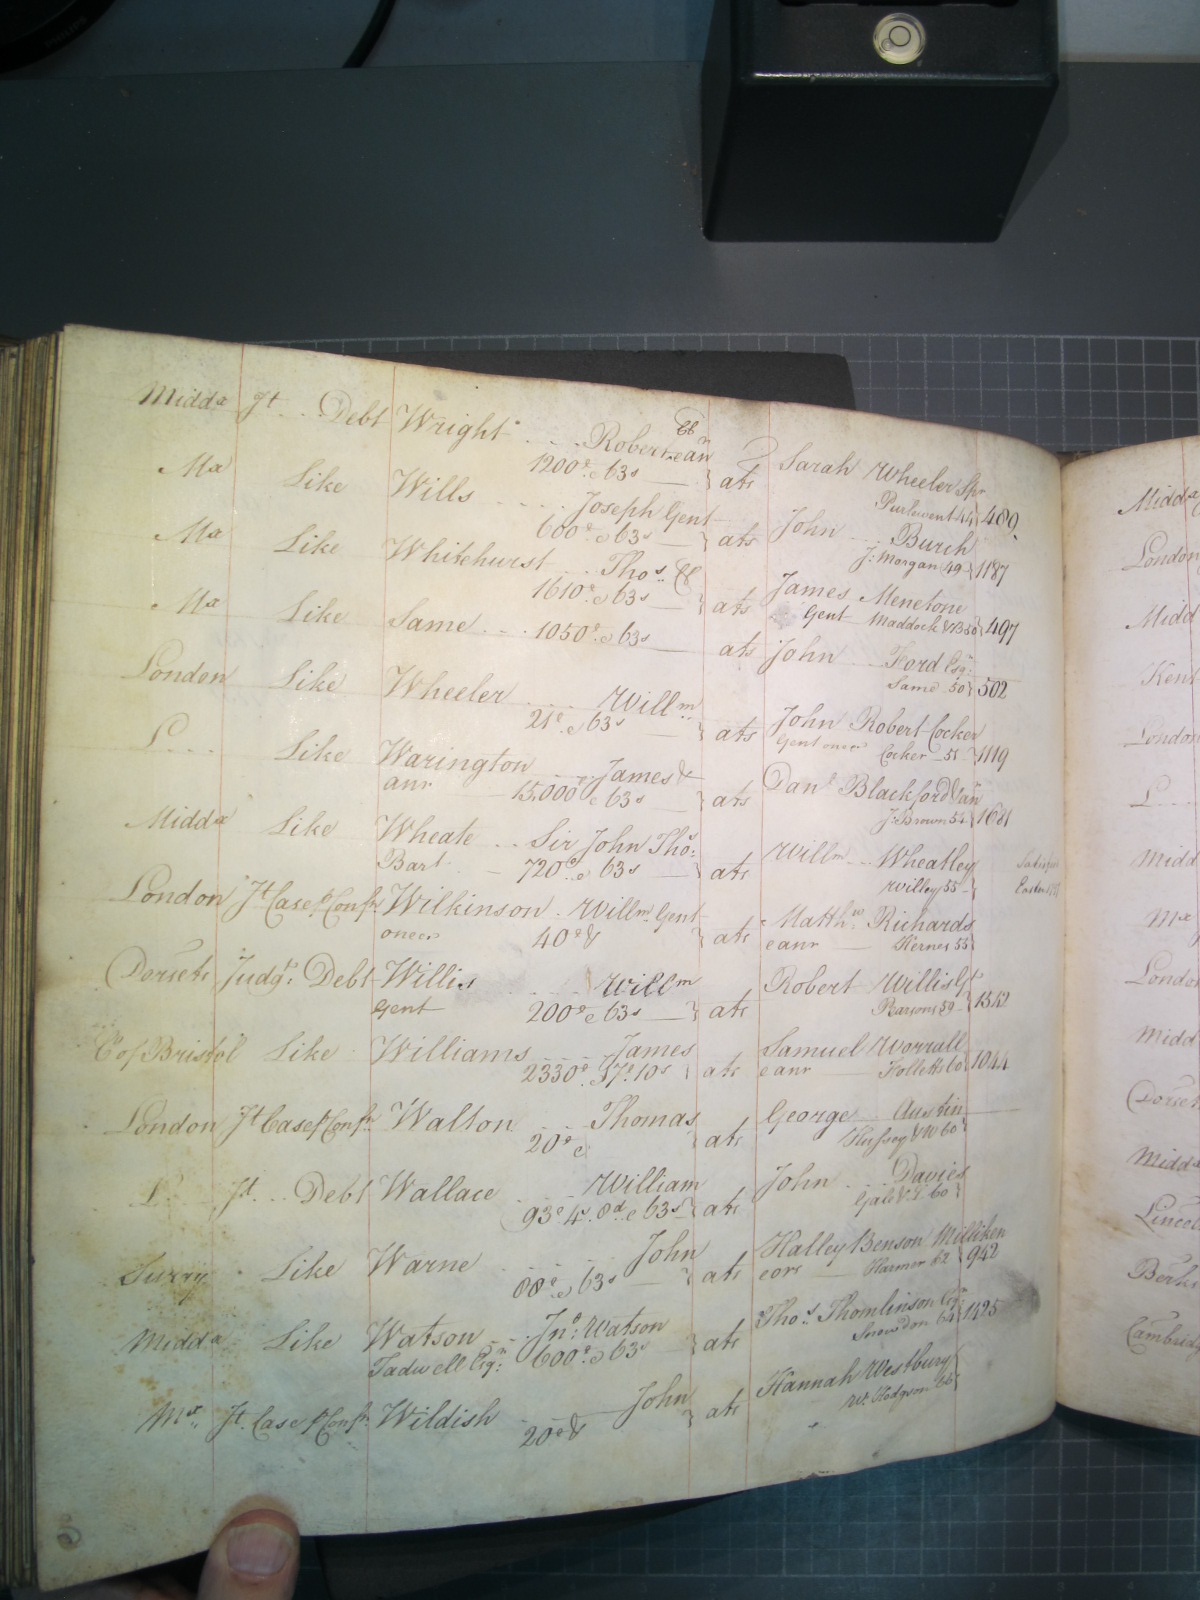 Midd.x Jt ... Debt Wright .... Robert & an.r
1200£ & 63s } ats Sarah Wheeler Spr
Purlewent 44 } 489
Mx Like Wills ... Joseph Gent
600£ & 63s } ats John ... Burch
J: Morgan 49 } 1187
Mx Like Whitehurst ... Thos.
1610£ & 63s } ats James Menetone
Gent Maddock 50 } 497
Mx Like Same ... 1050£ & 63s ats John ... Ford Esqr.
Same 50 } 502
London Like Wheeler .... Will.m
21£ & 63s } ats John Robert Cocker
Gent one &c Cocker 51 } 1119
L.... Like Warington ... James &
anr 15,000£ & 63s } ats Danl. Blackford & an.r
J: Brown 54 } 1681
Midd.x Like Wheate ... Sir John Thos:
Bart 720£ & 63s } ats Will.m ... Wheatley
Willey 55
London Jt Case p Conf.n Wilkinson . Will.m Gent
one &c 40£ & } ats Matth.w Richards
& anr Kernes 55
Dorsets Judgt. Debt Willis .... Will.m
Gent 200£ & 63s } ats Robert Willis Gt
Parsons 59 } 1352
C of Bristol Like Williams ... James
2330£ 37£ 10s } ats Samuel Worrall
& anr Folletts 60 } 1044
London Jt Case p Conf.n Walton ... Thomas
20£ & } ats George ... Austin
Hussey 60
L.... Jt ... Debt Wallace .... William
93£ 4s. 8d & 63s } ats John .... Davies
Gale 60
Surry Like Warne .... John
88£ & 63s } ats Halley Benson Milliken
& ors Harmer 62 } 942
Midd.x Like Watson ... Jno: Watson
Tadwell Esqr. 600£ & 63s } ats Thos. Thomlinson Esqr.
Snowdon 64 } 1425
Mx. Jt Case p Conf.n Wildish .... John
20£ & } ats Hannah Westbury
W: Hodgson 66
Midd.x
London
Midd
Kent
London
L....
Midd
Mx
London
Midd
Dorset
Midd.x
Lincol
Berks
Cambridg